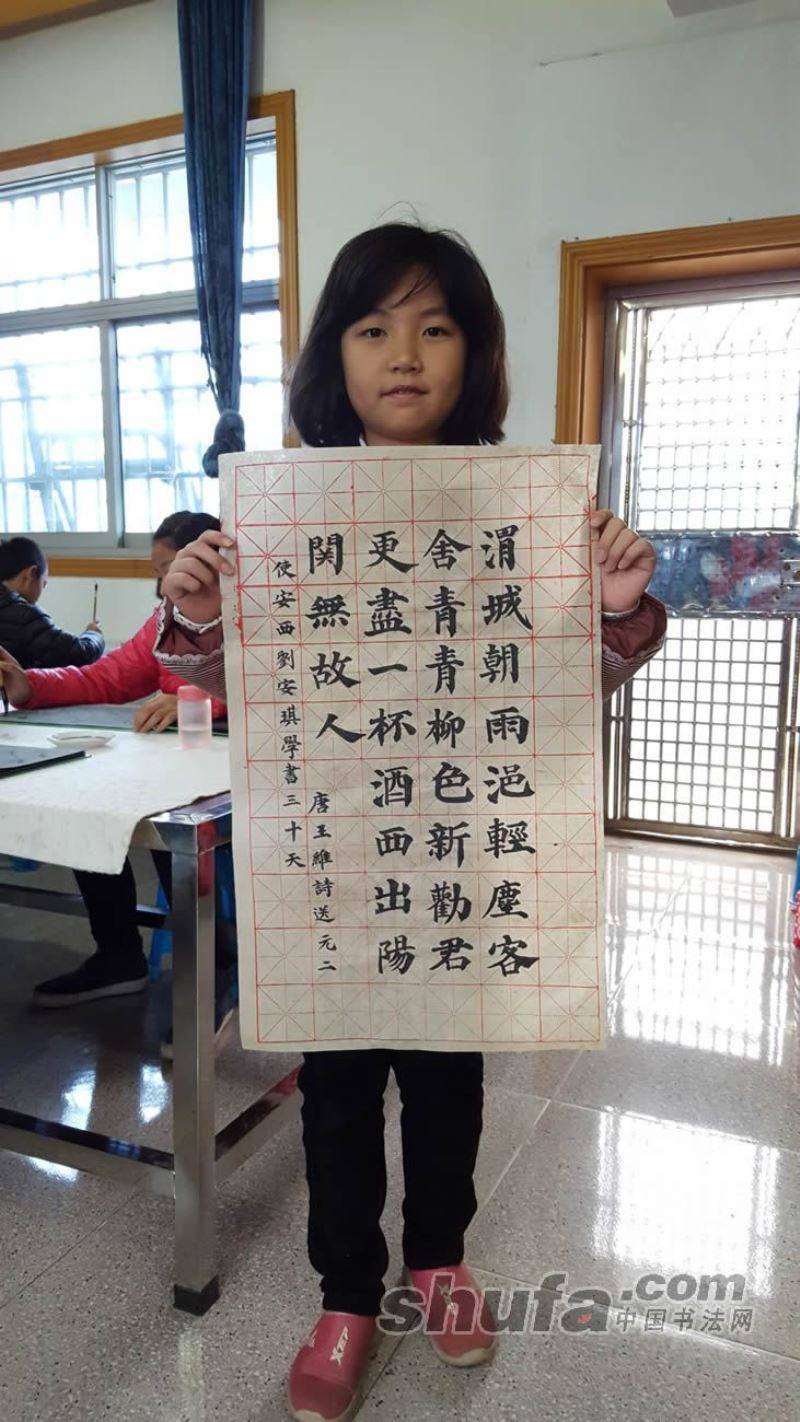 渭城朝雨浥輕塵客
舍青青柳色新勸君
更盡一杯酒西出陽
関無故人
唐王維詩送元二
使安西劉安琪學書三十天
XEP
shufa.com
中国书法网